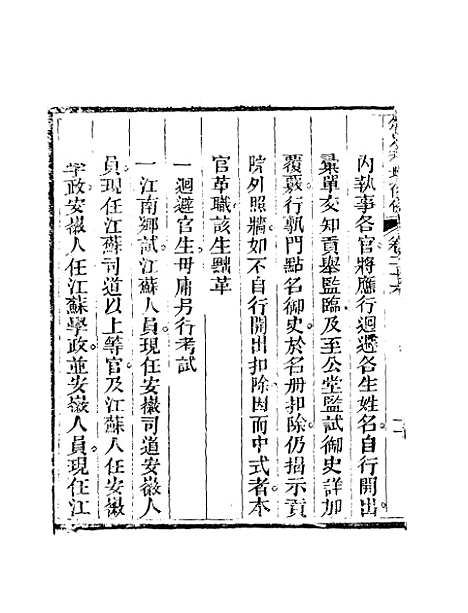 內執事各官將應行迴避各生姓名自行開出
彙單交知貢舉監臨及至公堂監試御史詳加
覆覈行軌門點名御史於名册扣除仍揭示貢
院外照牆如不自行開出扣除因而中式者本
官革職該生黜革
一迴避官生毋庸另行考試
一江南鄉試江蘇人員現任安徽司道安徽人
員現任江蘇司道以上等官及江蘇人任安徽
學政安徽人任江蘇學政並安徽人員現任江